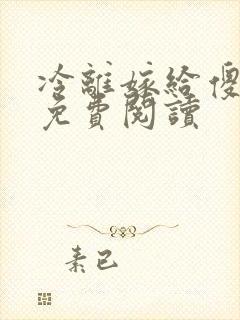 冷離嫁給傻
免費閱讀
素已